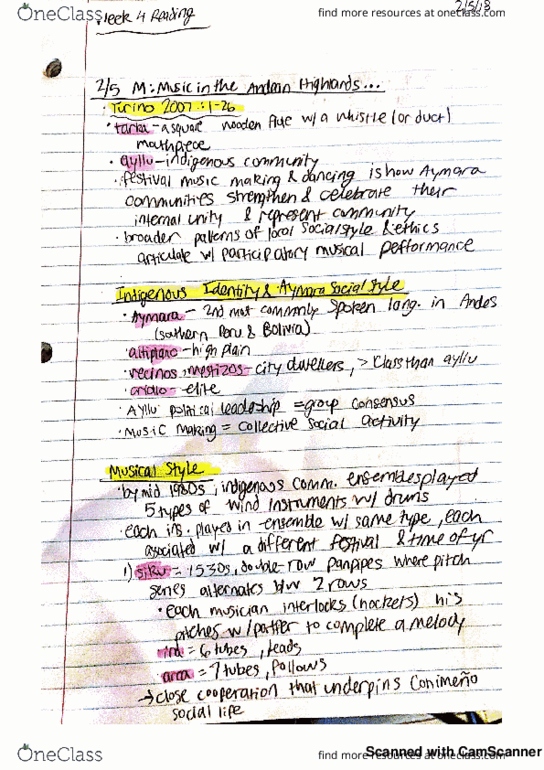 OneClass
find more resources at oneclass.com
Week 4 Reading
2/5/18
2/5 M: Music in the Andean Highlands...
· Turino 2007 : 1-26
· tarka - a square wooden flute w/ a whistle (or duct)
mouthpiece
· ayllu - indigenous community
· festival music making & dancing is how Aymara
communities strengthen & celebrate their
internal unity & represent community
· broader patterns of local social style & ethics
articulate w/ participatory musical performance
Indigenous Identity & Aymara Social Style
· Aymara - 2nd most commonly spoken lang. in Andes
(southern Peru & Bolivia)
· altiplano - high plain
· vecinos, mestizos - city dwellers, > class than ayllu
· criollo - elite
· Ayllu political leadership = group consensus
· music making = collective social activity
Musical Style
· by mid 1980s, indigenous comm. ensembles played
5 types of wind instruments w/ drums
· each ins. played in ensemble w/ same type, each
associated w/ a different festival & time of yr
1) siku = 1530s, double-row panpipes where pitch
series alternates b/w 2 rows
· each musician interlocks (hockets) his
pitches w/ partner to complete a melody
ira = 6 tubes, leads
arca = 7 tubes, follows
→ close cooperation that underpins Conimeño
social life
OneClass
find more resources at oneclass.com
Scanned with CamScanner